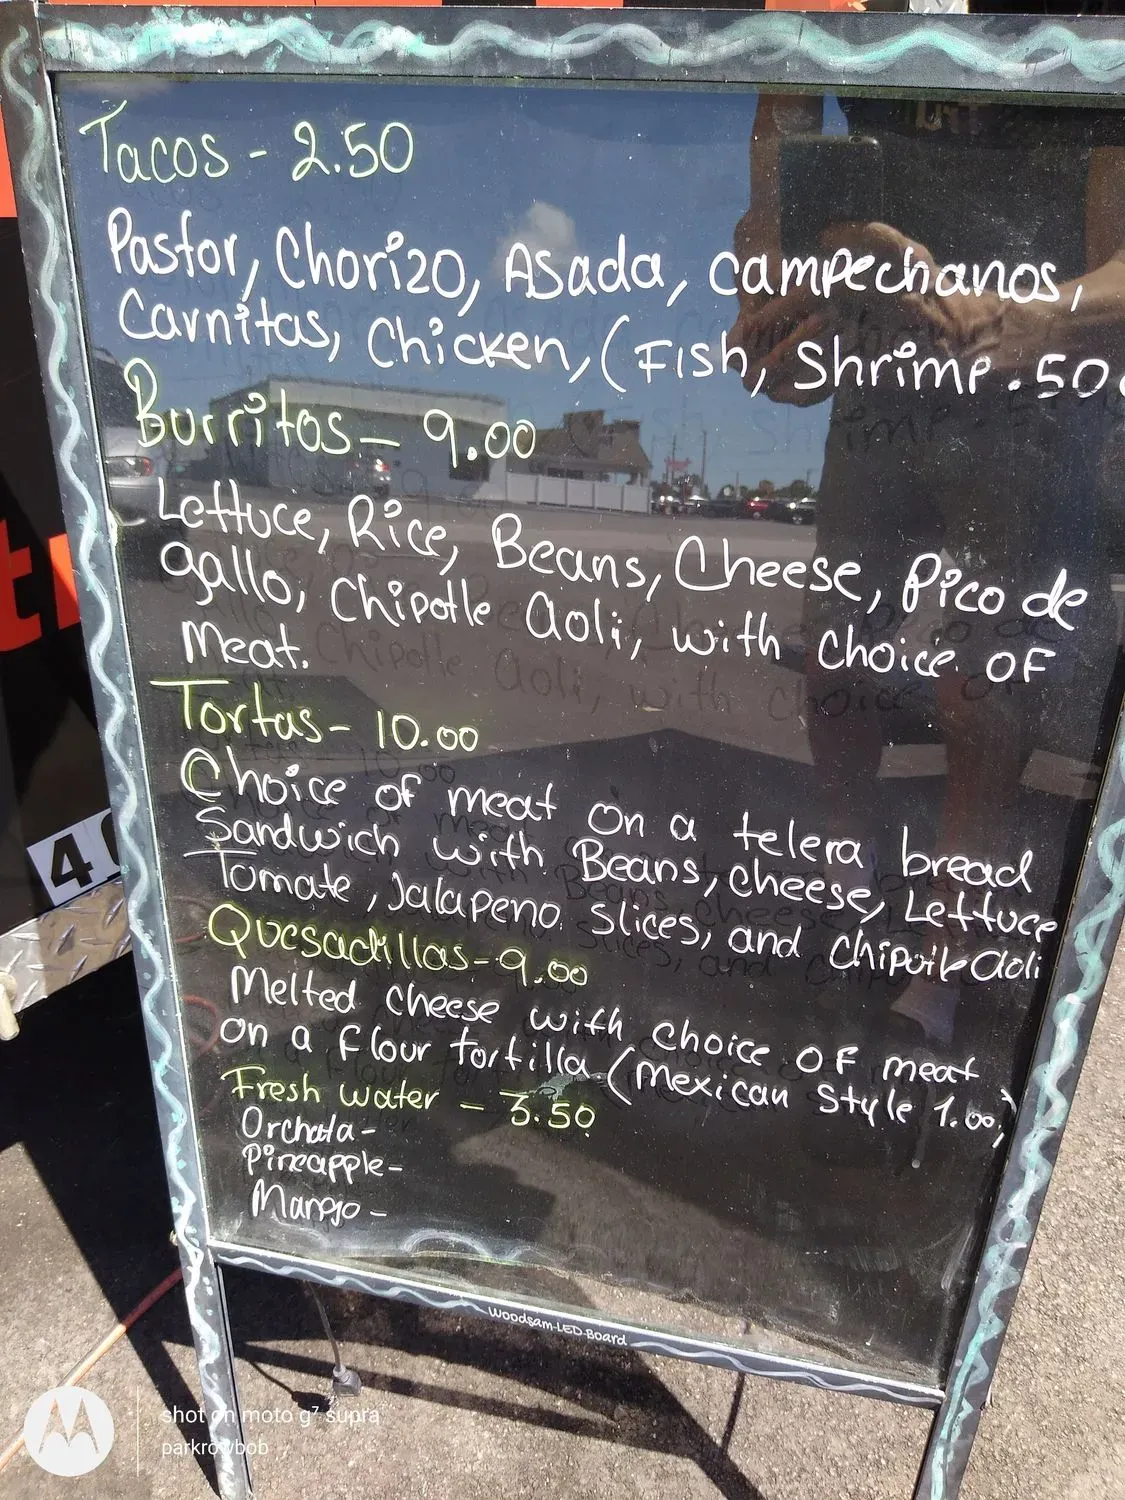 Tacos - 2.50
Pastor, Chorizo, Asada, Campechanos,
Carnitas, Chicken, (Fish, Shrimp .50
Burritos - 9.00
Lettuce, Rice, Beans, Cheese, Pico de
gallo, Chipotle Aoli, with choice of
Meat.
Tortas - 10.00
Choice of meat on a telera bread
Sandwich with Beans, cheese, Lettuce
Tomate, Jalapeno slices, and chipotle aoli
Quesadillas - 9.00
Melted cheese with choice of meat
on a flour tortilla (Mexican style 1.00)
Fresh water - 3.50
Orchata -
Pineapple -
Mango -
Woodsam-LED-Board
4
shot on moto g⁷ supra
parkrowbob